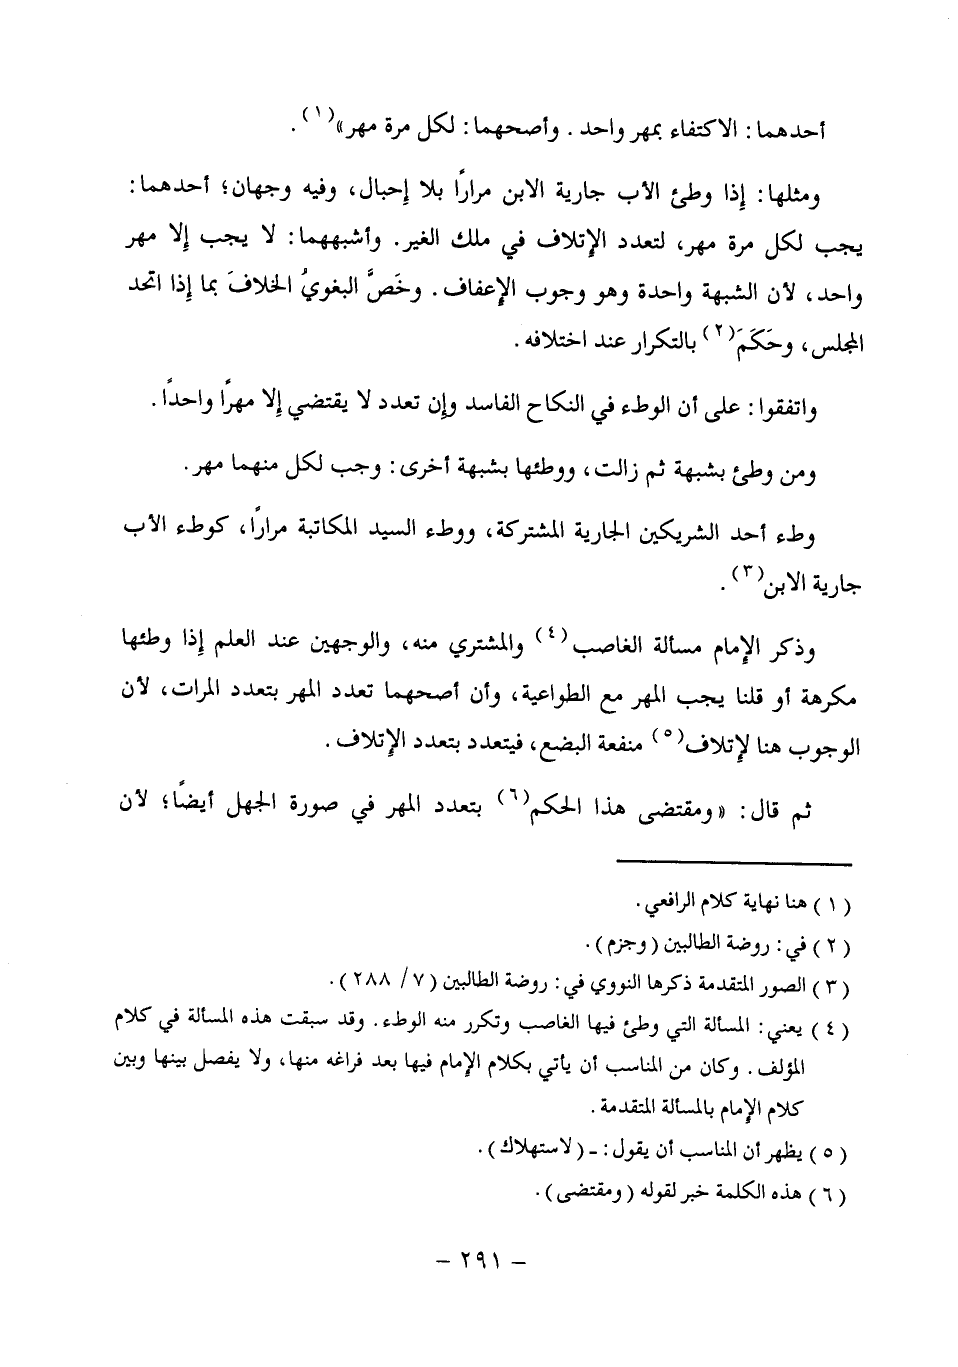 أحدهما: الاكتفاء بمهر واحد. وأصحهما: لكل مرة مهر»(١).
ومثلها: إذا وطئ الأب جارية الابن مرارًا بلا إحبال، وفيه وجهان؛ أحدهما:
يجب لكل مرة مهر، لتعدد الإتلاف في ملك الغير. وأشبههما: لا يجب إلا مهر
واحد، لأن الشبهة واحدة وهو وجوب الإعفاف. وخَصَّ البغويُ الخلافَ بما إذا اتحد
المجلس، وحَكَمَ(٢) بالتكرار عند اختلافه.
واتفقوا: على أن الوطء في النكاح الفاسد وإن تعدد لا يقتضي إلا مهرًا واحدًا.
ومن وطئ بشبهة ثم زالت، ووطئها بشبهة أخرى: وجب لكل منهما مهر.
وطء أحد الشريكين الجارية المشتركة، ووطء السيد المكاتبة مرارًا، كوطء الأب
جارية الابن(٣).
وذكر الإمام مسألة الغاصب(٤) والمشتري منه، والوجهين عند العلم إذا وطئها
مكرهة أو قلنا يجب المهر مع الطواعية، وأن أصحهما تعدد المهر بتعدد المرات، لأن
الوجوب هنا لإتلاف(٥) منفعة البضع، فيتعدد بتعدد الإتلاف.
ثم قال: «ومقتضى هذا الحكم(٦) بتعدد المهر في صورة الجهل أيضًا؛ لأن
(١) هنا نهاية كلام الرافعي.
(٢) في: روضة الطالبين (وجزم).
(٣) الصور المتقدمة ذكرها النووي في: روضة الطالبين (٧/ ٢٨٨).
(٤) يعني: المسألة التي وطئ فيها الغاصب وتكرر منه الوطء. وقد سبقت هذه المسألة في كلام
المؤلف. وكان من المناسب أن يأتي بكلام الإمام فيها بعد فراغه منها، ولا يفصل بينها وبين
كلام الإمام بالمسألة المتقدمة.
(٥) يظهر أن المناسب أن يقول: ـ (لاستهلاك).
(٦) هذه الكلمة خبر لقوله (ومقتضى).
- ٢٩١ -